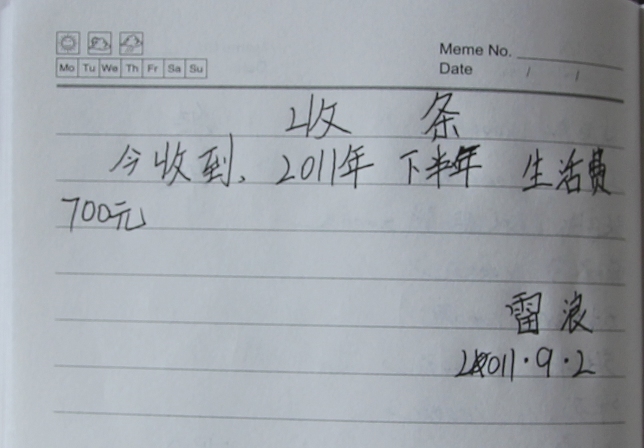 Meme No.
Mo Tu We Th Fr Sa Su
Date / /
收 条
今收到、2011年 下半年 生活费
700元
雷浪
2011.9.2